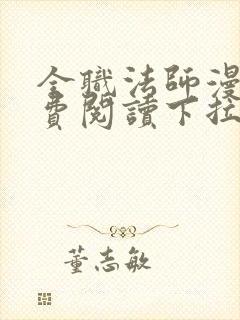 全職法師漫
費閱讀下拉
董志敏